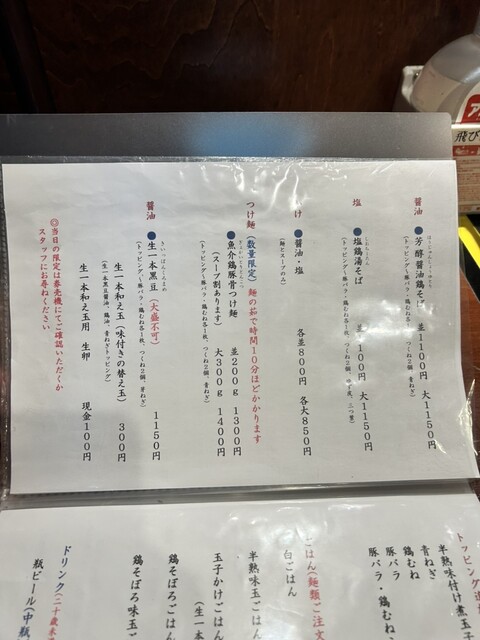 醤油
●芳醇醤油鶏そば 並1100円 大1150円
(トッピング～豚バラ・鶏むね各1枚、つくね2個、青ねぎ)
塩
しおとりたん
●塩鶏湯そば 並1100円 大1150円
(トッピング～豚バラ・鶏むね各1枚、つくね2個、三つ葉)
け
●醤油・塩 各並800円 各大850円
(麺とスープのみ)
つけ麺(数量限定) 麺の茹で時間10分ほどかかります
ぎょかいとりとんこつ
●魚介鶏豚骨つけ麺 並200g 1300円
(スープ割あります) 大300g 1400円
(トッピング～豚バラ・鶏むね各1枚、つくね2個、青ねぎ)
醤油
きいっぽんくろまめ
●生一本黒豆(大盛不可) 1150円
(トッピング～豚バラ・鶏むね各1枚、つくね2個、芽ねぎ)
生一本和え玉(味付きの替え玉) 300円
(生一本黒豆醤油、鶏油、青ねぎトッピング)
生一本和え玉用 生卵 現金100円
◎当日の限定は券売機にてご確認いただくか
スタッフにお尋ねください
トッピング
半熟味付け煮玉子
青ねぎ
鶏むね
豚バラ
豚バラ・鶏むね
ごはん(麺類ご注文
白ごはん
半熟味玉ごはん
玉子かけごはん
(生一本
鶏そぼろごはん
鶏そぼろ味玉ご
ドリンク(二十歳未
瓶ビール(中瓶
飛び